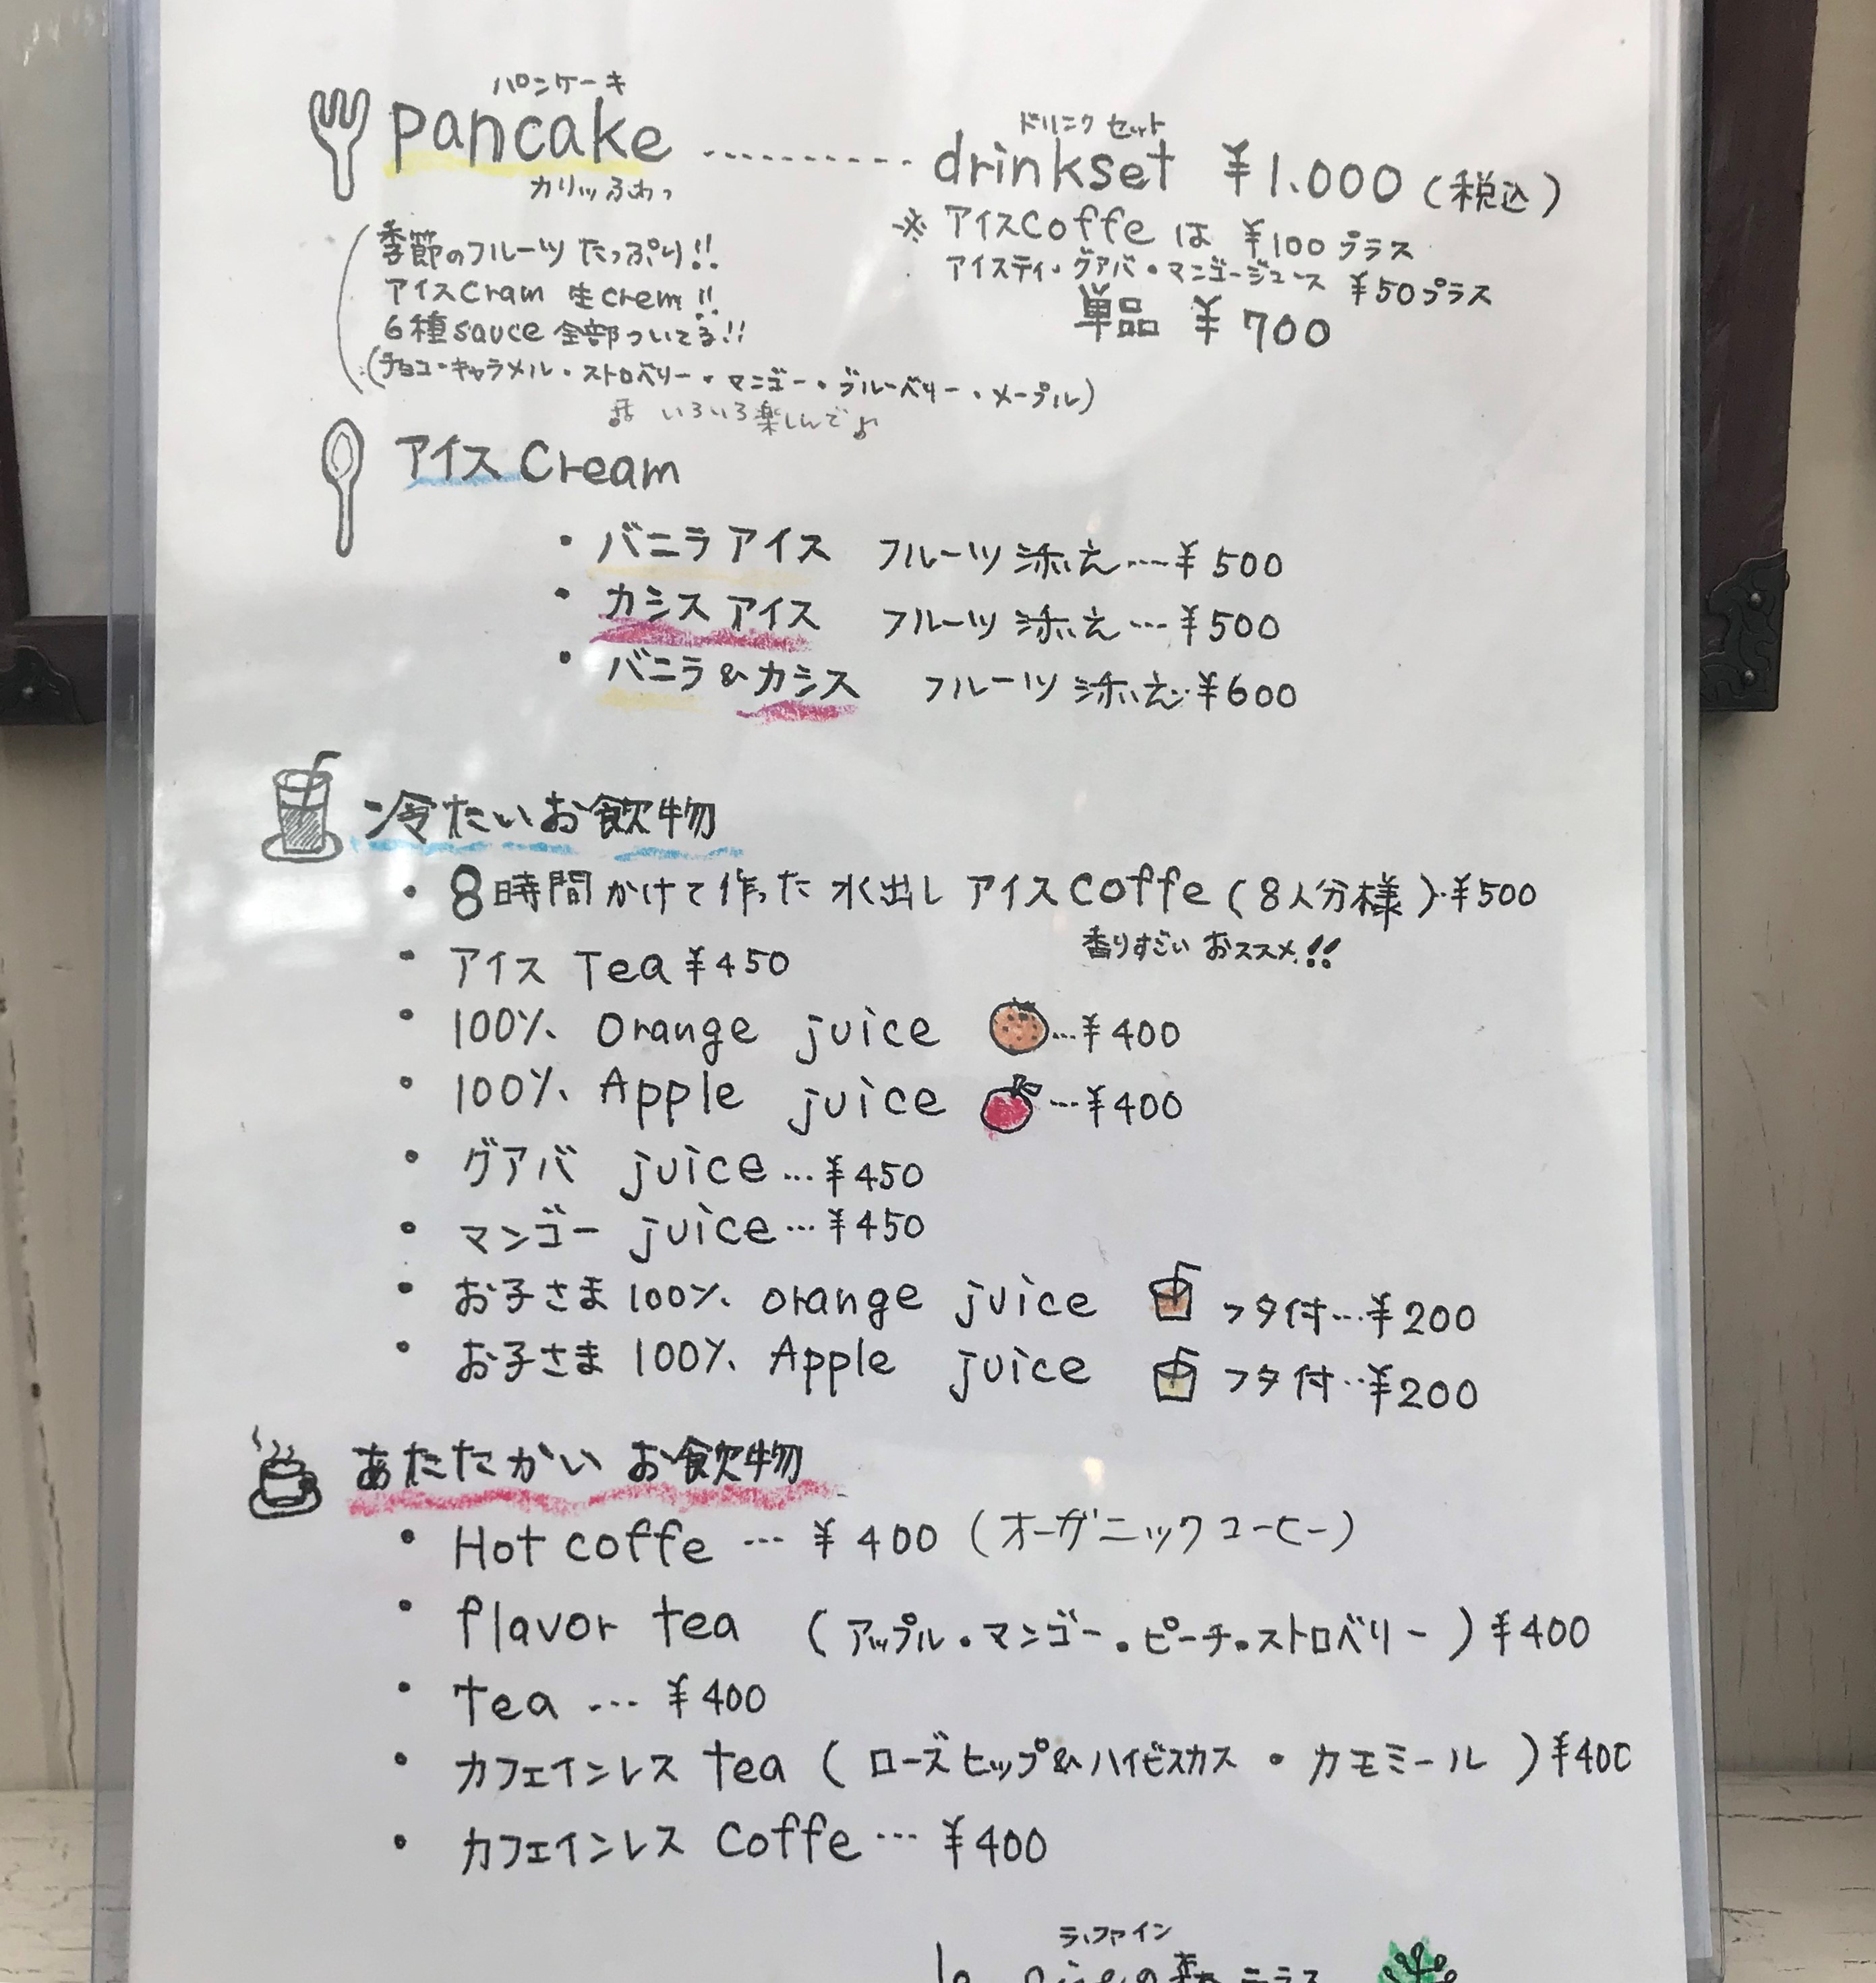 パンケーキ
pancake ---------- drinkset ¥1.000 (税込)
ドリンクセット
カリッふわっ
※アイスcoffe は ¥100プラス
アイスティ・グアバ・マンゴージュース ¥50プラス
単品 ¥700
(季節のフルーツたっぷり!!
アイスcram 生crem!!
6種sauce全部ついてる!!
(チョコ・キャラメル・ストロベリー・マンゴー・ブルーベリー・メープル)
いろいろ楽しんで♪
アイスCream
・バニラアイス フルーツ添え…¥500
・カシスアイス フルーツ添え…¥500
・バニラ&カシス フルーツ添え…¥600
冷たいお飲物
・8時間かけて作った水出しアイスcoffe(8人分様)…¥500
香りすごい おススメ!!
・アイス Tea ¥450
・100% orange juice …¥400
・100% Apple juice …¥400
・グアバ juice…¥450
・マンゴー juice…¥450
・お子さま100% orange juice フタ付…¥200
・お子さま100% Apple juice フタ付…¥200
あたたかいお飲物
・Hot coffe … ¥400(オーガニックコーヒー)
・flavor tea (アップル・マンゴー・ピーチ・ストロベリー)¥400
・tea … ¥400
・カフェインレス tea (ローズヒップ&ハイビスカス・カモミール)¥400
・カフェインレス coffe … ¥400
ラ、ファイン